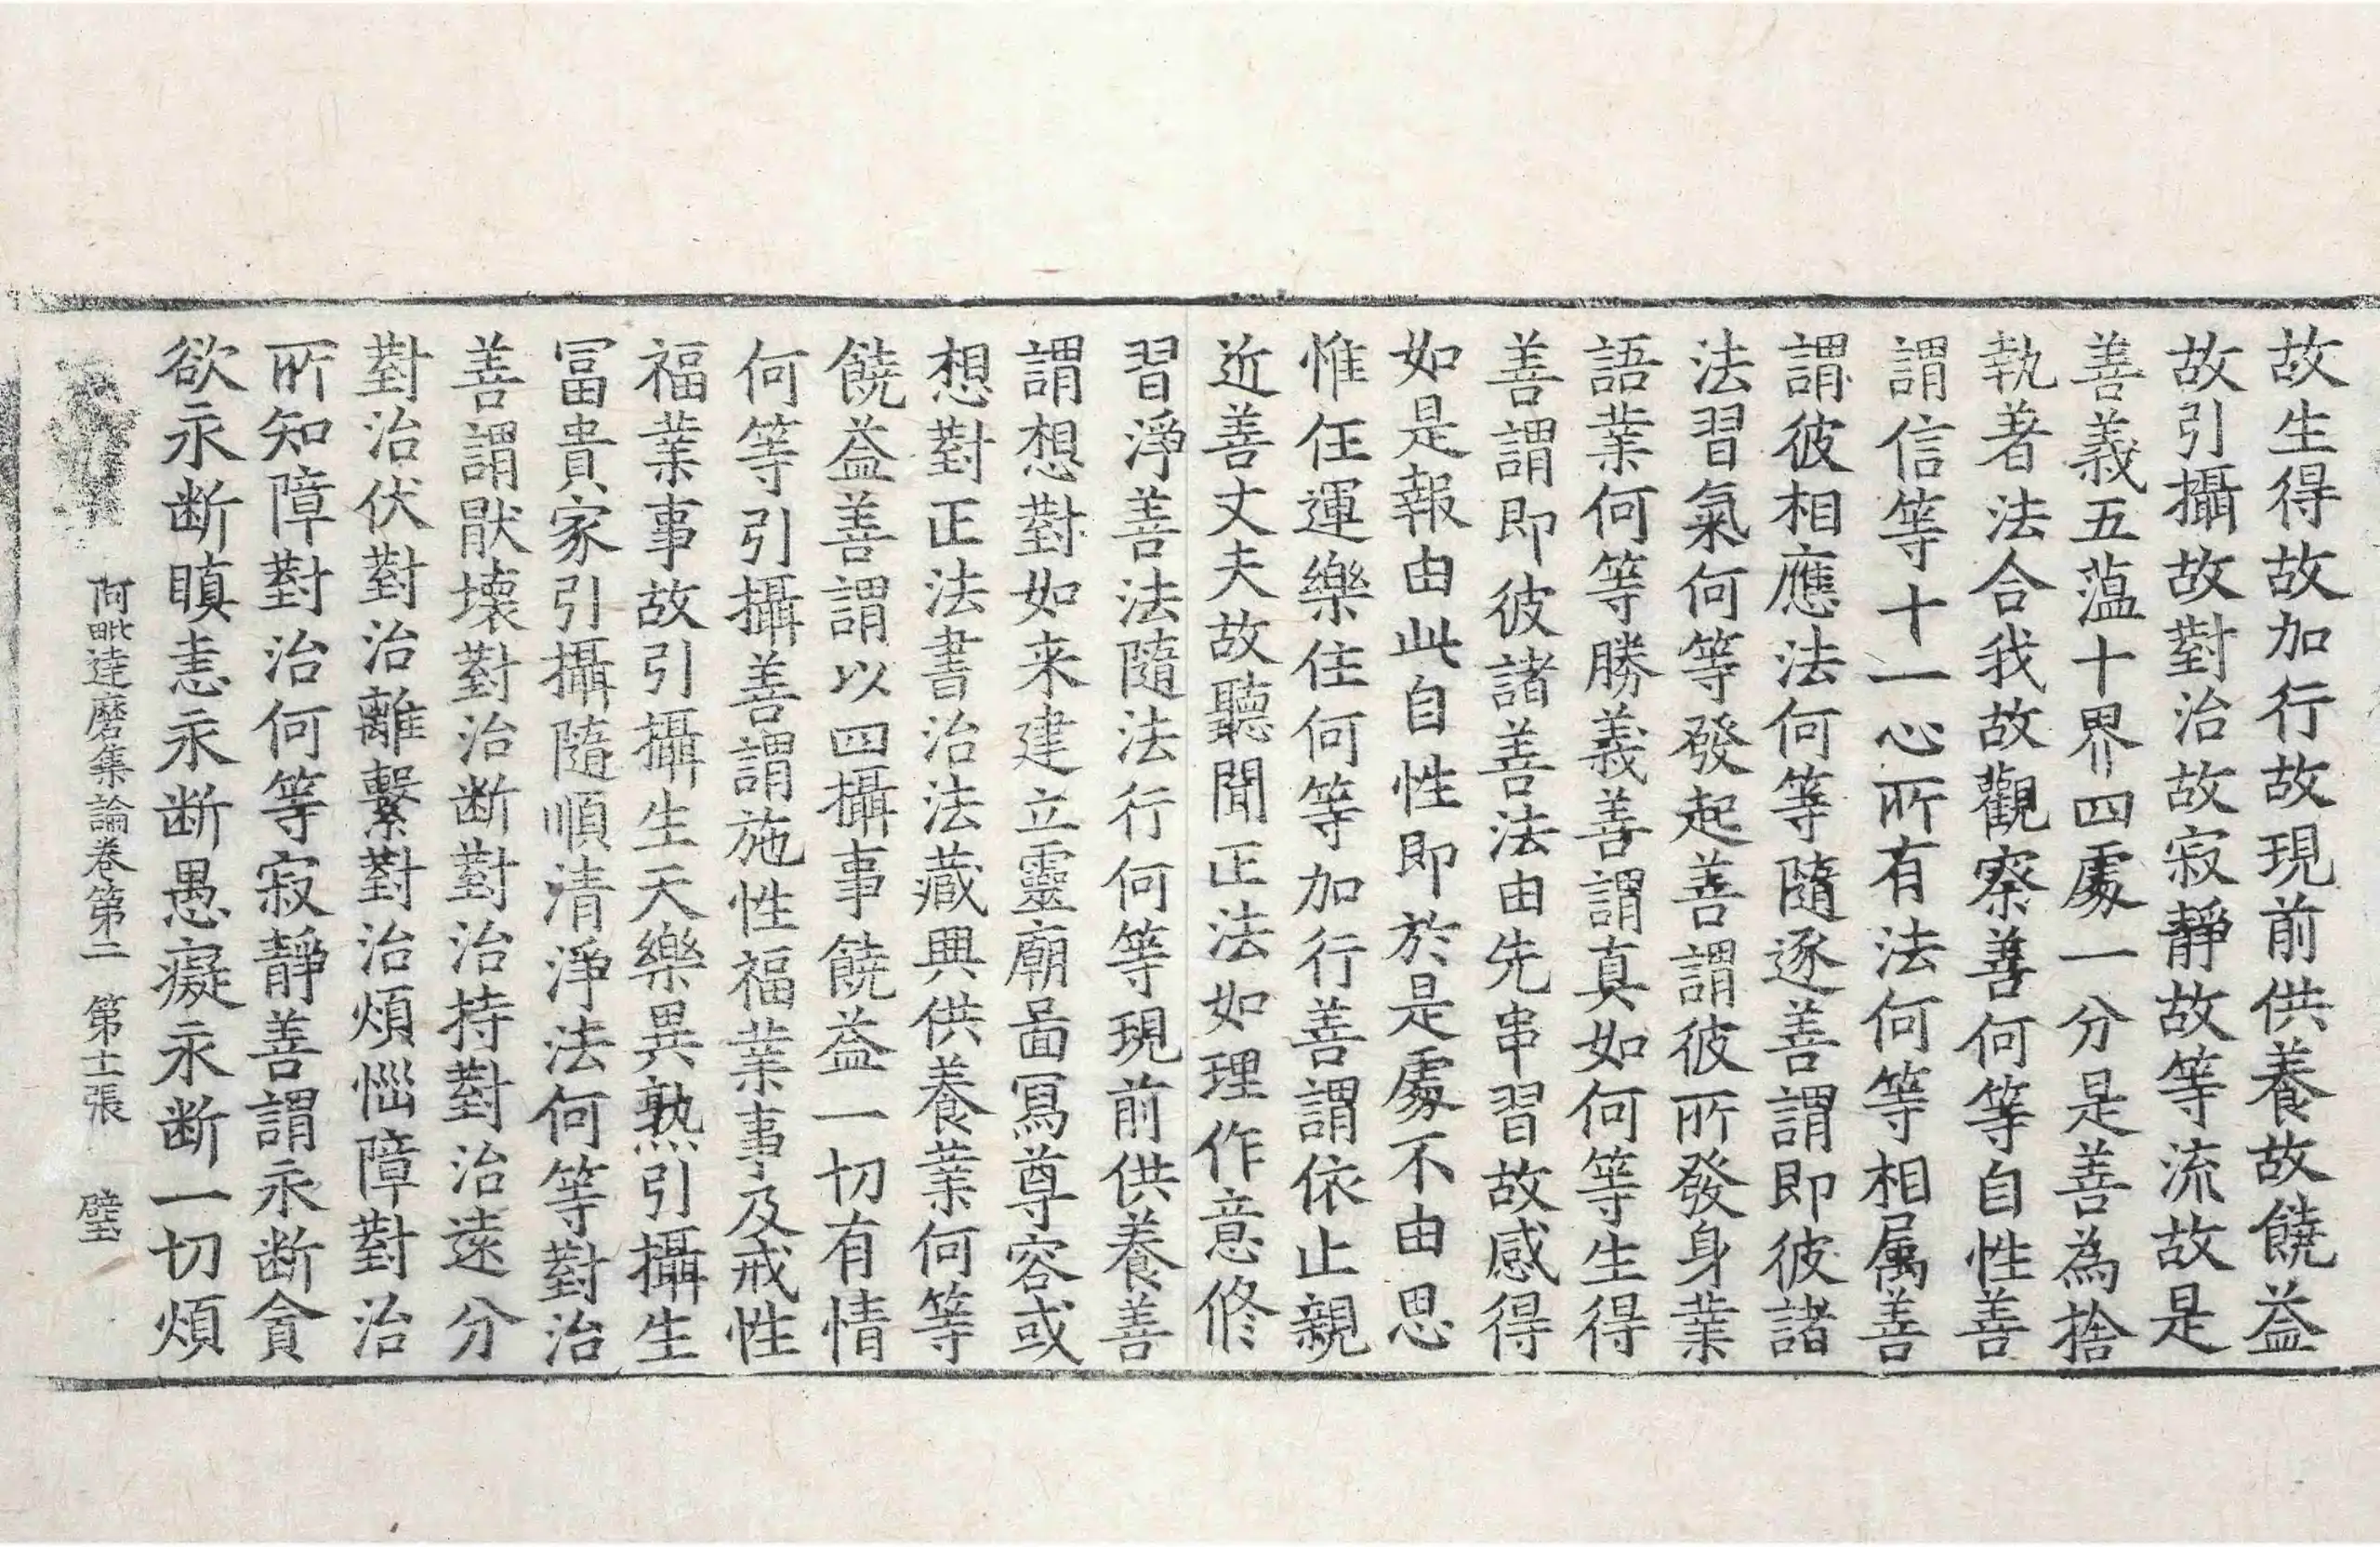 故生得故加行故現前供養故饒益
故引攝故對治故寂靜故等流故是
善義五薀十界四處一分是善為捨
執著法合我故觀察善何等自性善
謂信等十一心所有法何等相属善
謂彼相應法何等隨逐善謂即彼諸
法習氣何等發起善謂彼所發身業
語業何等勝義善謂真如何等生得
善謂即彼諸善法由先串習故感得
如是報由此自性即於是處不由思
惟任運樂住何等加行善謂依止親
近善丈夫故聽聞正法如理作意修
習淨善法隨法行何等現前供養善
謂想對如来建立靈廟啚冩尊容或
想對正法書治法藏興供養業何等
饒益善謂以四攝事饒益一切有情
何等引攝善謂施性福業事及戒性
福業事故引攝生天樂異熟引攝生
冨貴家引攝隨順清淨法何等對治
善謂猒壞對治断對治持對治遠分
對治伏對治離繫對治煩惱障對治
所知障對治何等寂靜善謂永断貪
欲永断瞋恚永断愚癡永断一切煩
阿毗達磨集論卷第二 第十二張 璧